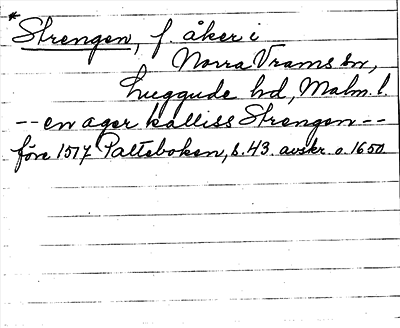 * Strengen, f. åker i
Norra Vrams sn,
Luggude hd, Malm. l.
-- en ager kalliss Strengen --
före 1517 Palteboken, s. 43. avskr. o. 1650.